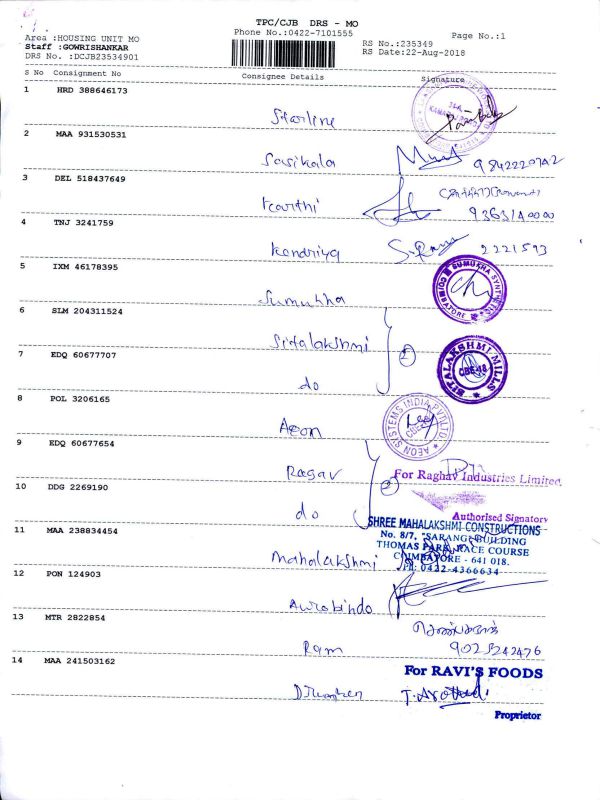 TPC/CJB DRS - MO
Area :HOUSING UNIT MO
Phone No.:0422-7101555
Page No.:1
Staff :GOWRISHANKAR
RS No.:235349
DRS No. :DCJB23534901
RS Date:22-Aug-2018
S No Consignment No Consignee Details Signature
1 HRD 388646173
Starline
2 MAA 931530531
Sasikala
3 DEL 518437649
Karthi
9363140000
4 TNJ 3241759
Kendriya 2221593
5 IXM 46178395
SUMUKHA SYNTHETICS
COIMBATORE
Sumukha
6 SLM 204311524
Sitalakshmi
2
SITALAKSHMI MILLS
CBE-18
7 EDQ 60677707
do
8 POL 3206165
AEON SYSTEMS INDIA PVT LTD
Aeon
9 EDQ 60677654
Ragav
For Raghav Industries Limited
10 DDG 2269190
do
Authorised Signatory
11 MAA 238834454
SHREE MAHALAKSHMI CONSTRUCTIONS
No. 8/7, "SARANG" BUILDING
THOMAS PARK, RACE COURSE
COIMBATORE - 641 018.
PH: 0422-4366634
Mahalakshmi
12 PON 124903
Aurobindo
13 MTR 2822854
Ram 9025242476
14 MAA 241503162
For RAVI'S FOODS
Proprietor